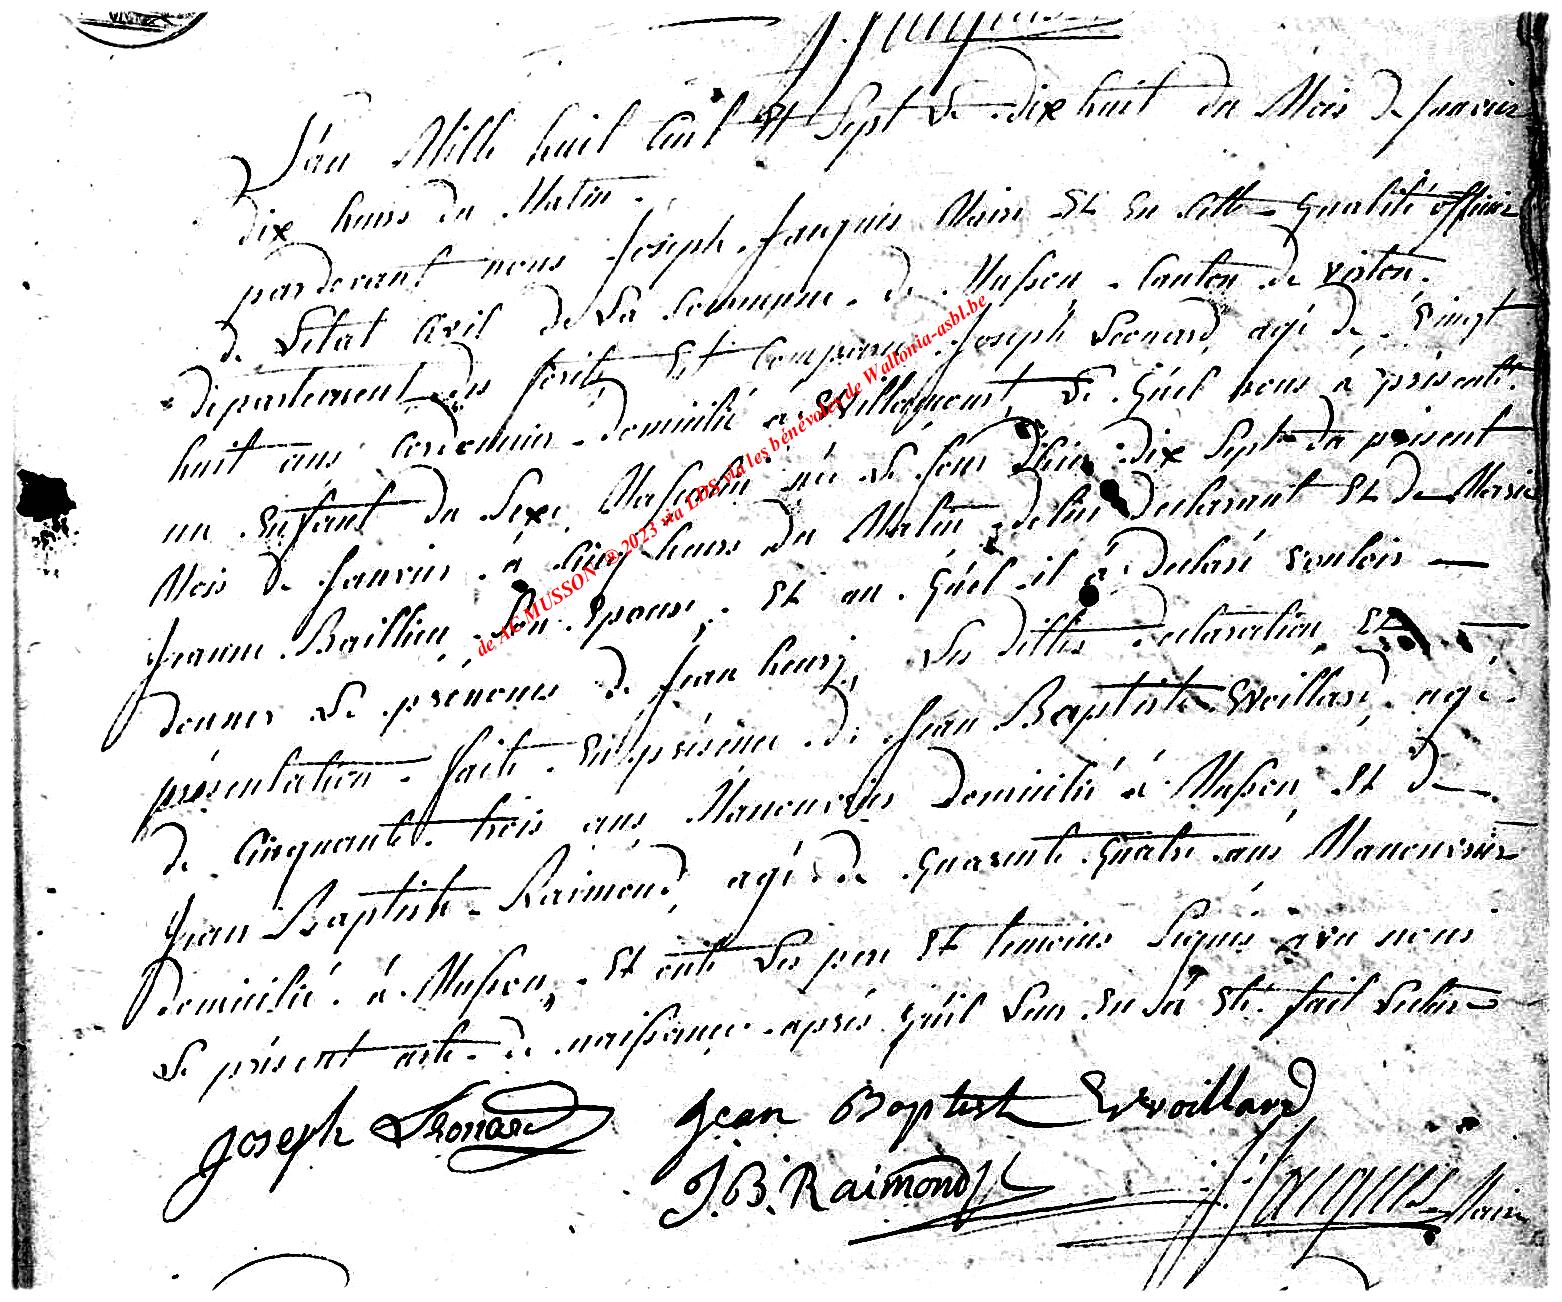 J. Jacques
L'an Mille huit Cent Et Sept Le dix huit du Mois de Janvier
dix heures du Matin.
pardevant nous Joseph Jacques Maire Et En Cette qualité officier
de L'état Civil de La Commune de Musson Canton de virton.
département des forêts Est Comparu Joseph Leonard, agé de vingt
huit ans Cordonnier domicilié a Willancourt, Le quel nous à présenté
un Enfant du Sexe Masculin né Le Jour D'hier dix Sept du présent
Mois de Janvier à Cinq heures du Matin de lui déclarant Et de Marie
Jeanne Baillieu, Son Epouse. Et au quel il à Déclaré vouloir
donner Le prénoms de Jean henry, Les dittes déclaration, Et
présentation faite En présence de Jean Baptiste Wvoillard, agé
de Cinquante trois ans Manouvrier Domicilié à Musson, Et de
Jean Baptiste Raimond, agé de quarente quatre ans Manouvrier
domicilié à Musson, Et ont Les pere Et temoins Signés avu nous
Le présent acte de naissance après quil Leur En a Eté fait Lecture
Joseph Leonard Jean Baptist Wvoillard
J. B. Raimond J. Jacques Maire
de AC MUSSON ® 2023 via LDS via les bénévoles de Wallonia-asbl.be